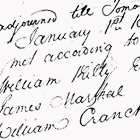 adjourned till Tomo
January 1st 1
met according to
William Kilty E
James Marshal
William Cranch